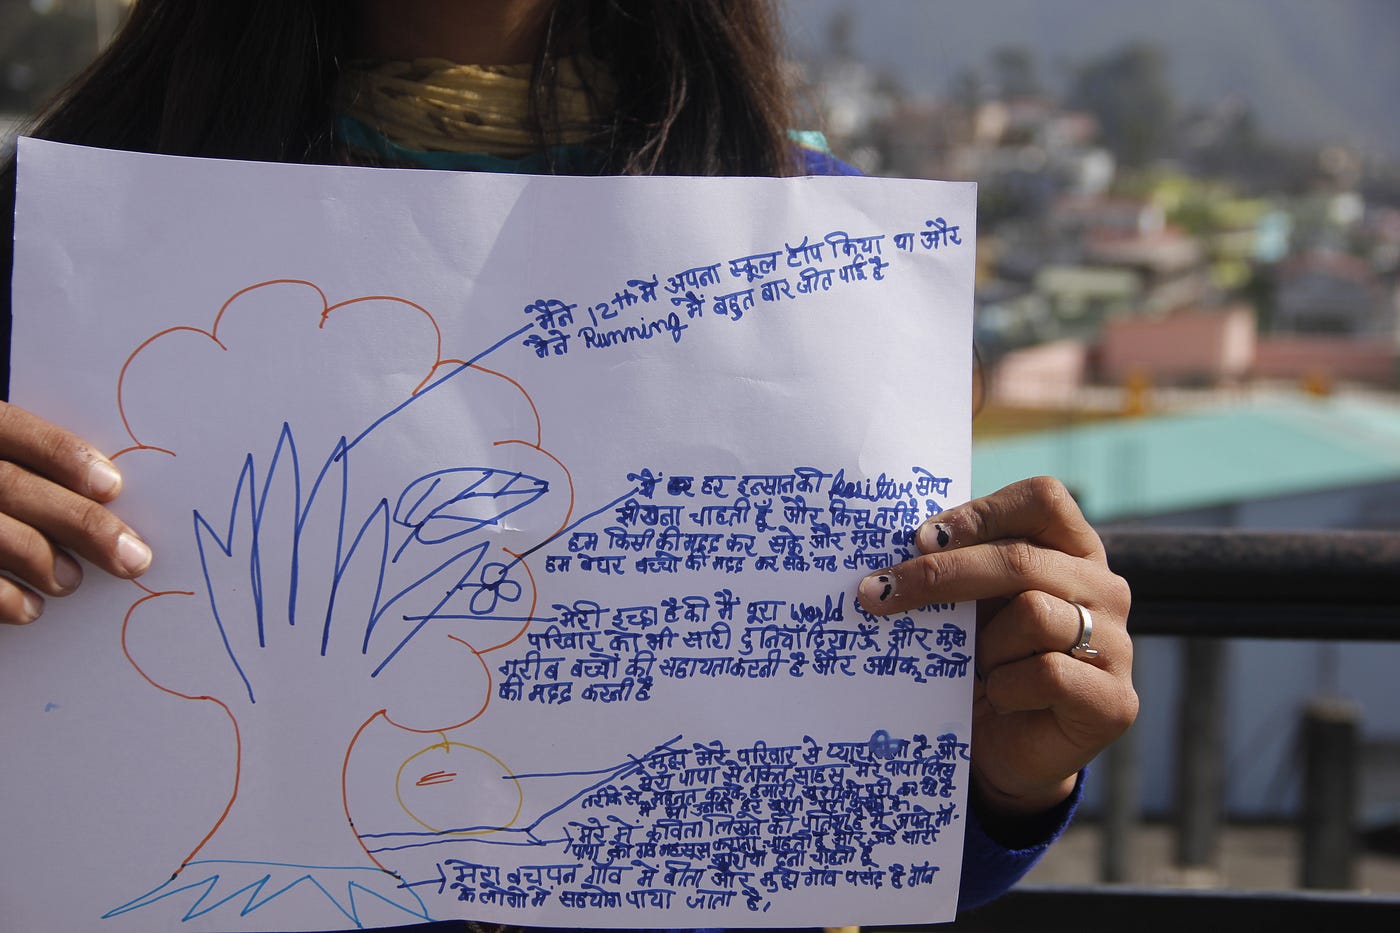 मैंने 12th में अपना स्कूल टॉप किया था और
मैंने Running में बहुत बार जीत पाई है
मैं हर इन्सान की Positive सोच
सीखना चाहती हूँ और किस तरीके से
हम किसी की मदद कर सके और मुझे
हम बेघर बच्चों की मदद कर सके यह सीखना
मेरी इच्छा है की मैं पूरा World
परिवार को भी सारी दुनियाँ दिखाऊँ और मुझे
गरीब बच्चों की सहायता करनी है और अधिक लोगों
की मदद करनी है
मुझे मेरे परिवार से प्यार है और
मेरा पापा से ताकत साहस मेरे पापा जिस
तरीके से मेहनत करके हमारी खुशी को पूरी कर रहे है
मैं भी उनकी हर खुशी
मेरे में कविता लिखने की प्रतिभा है मैं अपने माँ-
पापा को गर्व महसूस कराना चाहती हूँ और उन्हें सारी
खुशियाँ देना चाहती हूँ
मेरा बचपन गाँव में बीता और मुझे गाँव पसंद है गाँव
के लोगों में सहयोग पाया जाता है,